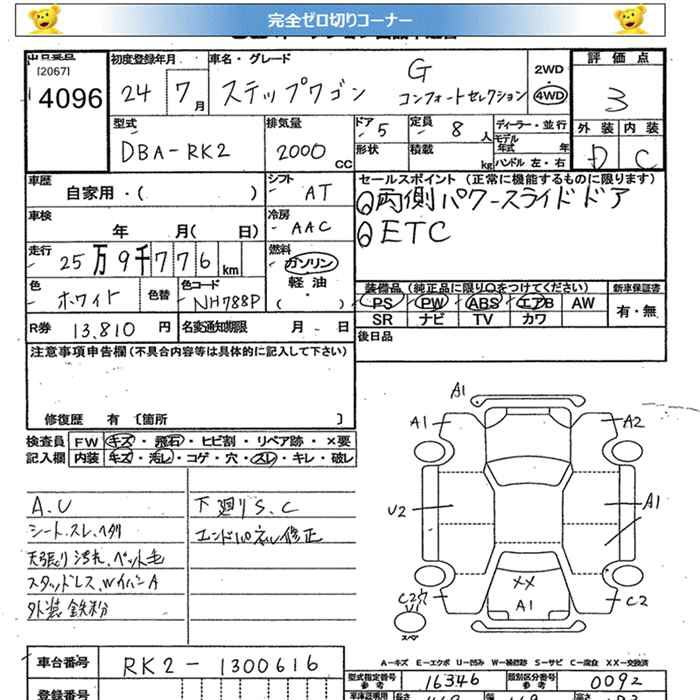 完全ゼロ切りコーナー
[2067]
4096
初度登録年月
24 7月
車名・グレード
ステップワゴン G コンフォートセレクション
2WD
・
4WD
評価点
3
外装 内装
D C
型式
DBA-RK2
排気量
2000 CC
ドア 5
形状
定員 8 人
積載 kg
ディーラー・並行
モデル年式 年
ハンドル 左・右
車歴
自家用・( )
シフト
AT
車検
年 月( 日)
冷房
AAC
走行
25万9千776km
燃料
ガソリン
軽油
・( )
色
ホワイト
色替
色コード
NH788P
R券 13,810 円
名変通知期限 月 日
セールスポイント(正常に機能するものに限ります)
◎両側パワースライドドア
◎ETC
装備品(純正品に限り○をつけてください)
PS PW ABS エアB AW
SR ナビ TV カワ
新車保証書
有・無
後日品
注意事項申告欄(不具合内容等は具体的に記入して下さい)
修復歴 有 〔箇所 〕
検査員
記入欄
FW キズ・飛石・ヒビ割・リペア跡・×要
内装 キズ・汚レ・コゲ・穴・スレ・キレ・破レ
A.U
シート.スレ.ヘタリ
天張り汚れ、ペット毛
スタッドレス、WイハンA
外装 鉄粉
下廻りS.C
エンドパネル修正
A1
A1
A2
U2
A1
XX
A1
C2穴
U1
C2
スペア
A-キズ E-エクボ U-凹み W-補修跡 S-サビ C-腐食 XX-交換済
車台番号 RK2-1300616
型式指定番号
参考
16346
類別区分番号
参考
0092
登録番号